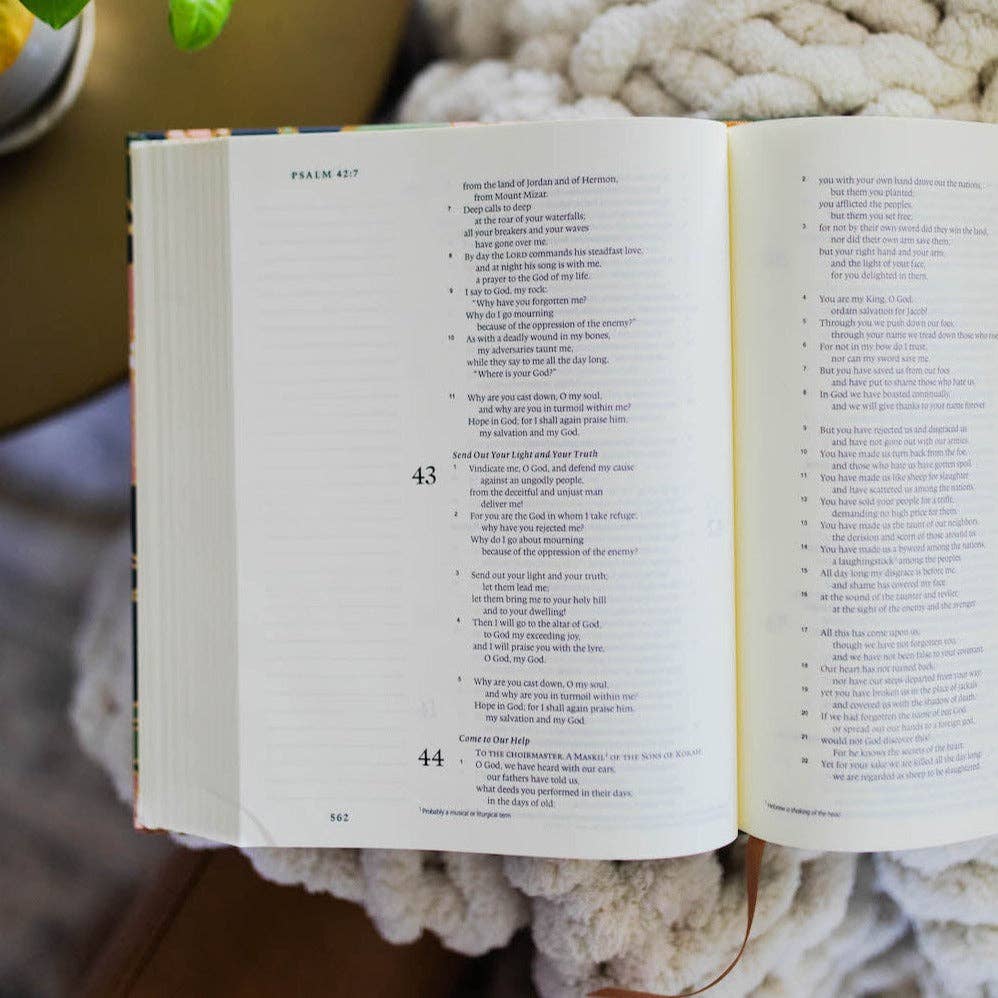 PSALM 42:7
from the land of Jordan and of Hermon,
from Mount Mizar.
7 Deep calls to deep
at the roar of your waterfalls;
all your breakers and your waves
have gone over me.
8 By day the LORD commands his steadfast love,
and at night his song is with me,
a prayer to the God of my life.
9 I say to God, my rock:
"Why have you forgotten me?
Why do I go mourning
because of the oppression of the enemy?"
10 As with a deadly wound in my bones,
my adversaries taunt me,
while they say to me all the day long,
"Where is your God?"
11 Why are you cast down, O my soul,
and why are you in turmoil within me?
Hope in God; for I shall again praise him,
my salvation and my God.
Send Out Your Light and Your Truth
43 1 Vindicate me, O God, and defend my cause
against an ungodly people,
from the deceitful and unjust man
deliver me!
2 For you are the God in whom I take refuge;
why have you rejected me?
Why do I go about mourning
because of the oppression of the enemy?
3 Send out your light and your truth;
let them lead me;
let them bring me to your holy hill
and to your dwelling!
4 Then I will go to the altar of God,
to God my exceeding joy,
and I will praise you with the lyre,
O God, my God.
5 Why are you cast down, O my soul,
and why are you in turmoil within me?
Hope in God; for I shall again praise him,
my salvation and my God.
Come to Our Help
TO THE CHOIRMASTER. A MASKIL¹ OF THE SONS OF KORAH.
44 1 O God, we have heard with our ears,
our fathers have told us,
what deeds you performed in their days,
in the days of old:
¹ Probably a musical or liturgical term
562
2 you with your own hand drove out the nations,
but them you planted;
you afflicted the peoples,
but them you set free;
3 for not by their own sword did they win the land,
nor did their own arm save them,
but your right hand and your arm,
and the light of your face,
for you delighted in them.
4 You are my King, O God;
ordain salvation for Jacob!
5 Through you we push down our foes;
through your name we tread down those who rise
6 For not in my bow do I trust,
nor can my sword save me.
7 But you have saved us from our foes
and have put to shame those who hate us.
8 In God we have boasted continually,
and we will give thanks to your name forever.
9 But you have rejected us and disgraced us
and have not gone out with our armies.
10 You have made us turn back from the foe,
and those who hate us have gotten spoil.
11 You have made us like sheep for slaughter
and have scattered us among the nations.
12 You have sold your people for a trifle,
demanding no high price for them.
13 You have made us the taunt of our neighbors,
the derision and scorn of those around us.
14 You have made us a byword among the nations,
a laughingstock¹ among the peoples.
15 All day long my disgrace is before me,
and shame has covered my face
16 at the sound of the taunter and reviler,
at the sight of the enemy and the avenger.
17 All this has come upon us,
though we have not forgotten you,
and we have not been false to your covenant.
18 Our heart has not turned back,
nor have our steps departed from your way;
19 yet you have broken us in the place of jackals
and covered us with the shadow of death.
20 If we had forgotten the name of our God
or spread out our hands to a foreign god,
21 would not God discover this?
For he knows the secrets of the heart.
22 Yet for your sake we are killed all the day long;
we are regarded as sheep to be slaughtered.
¹ Hebrew a shaking of the head